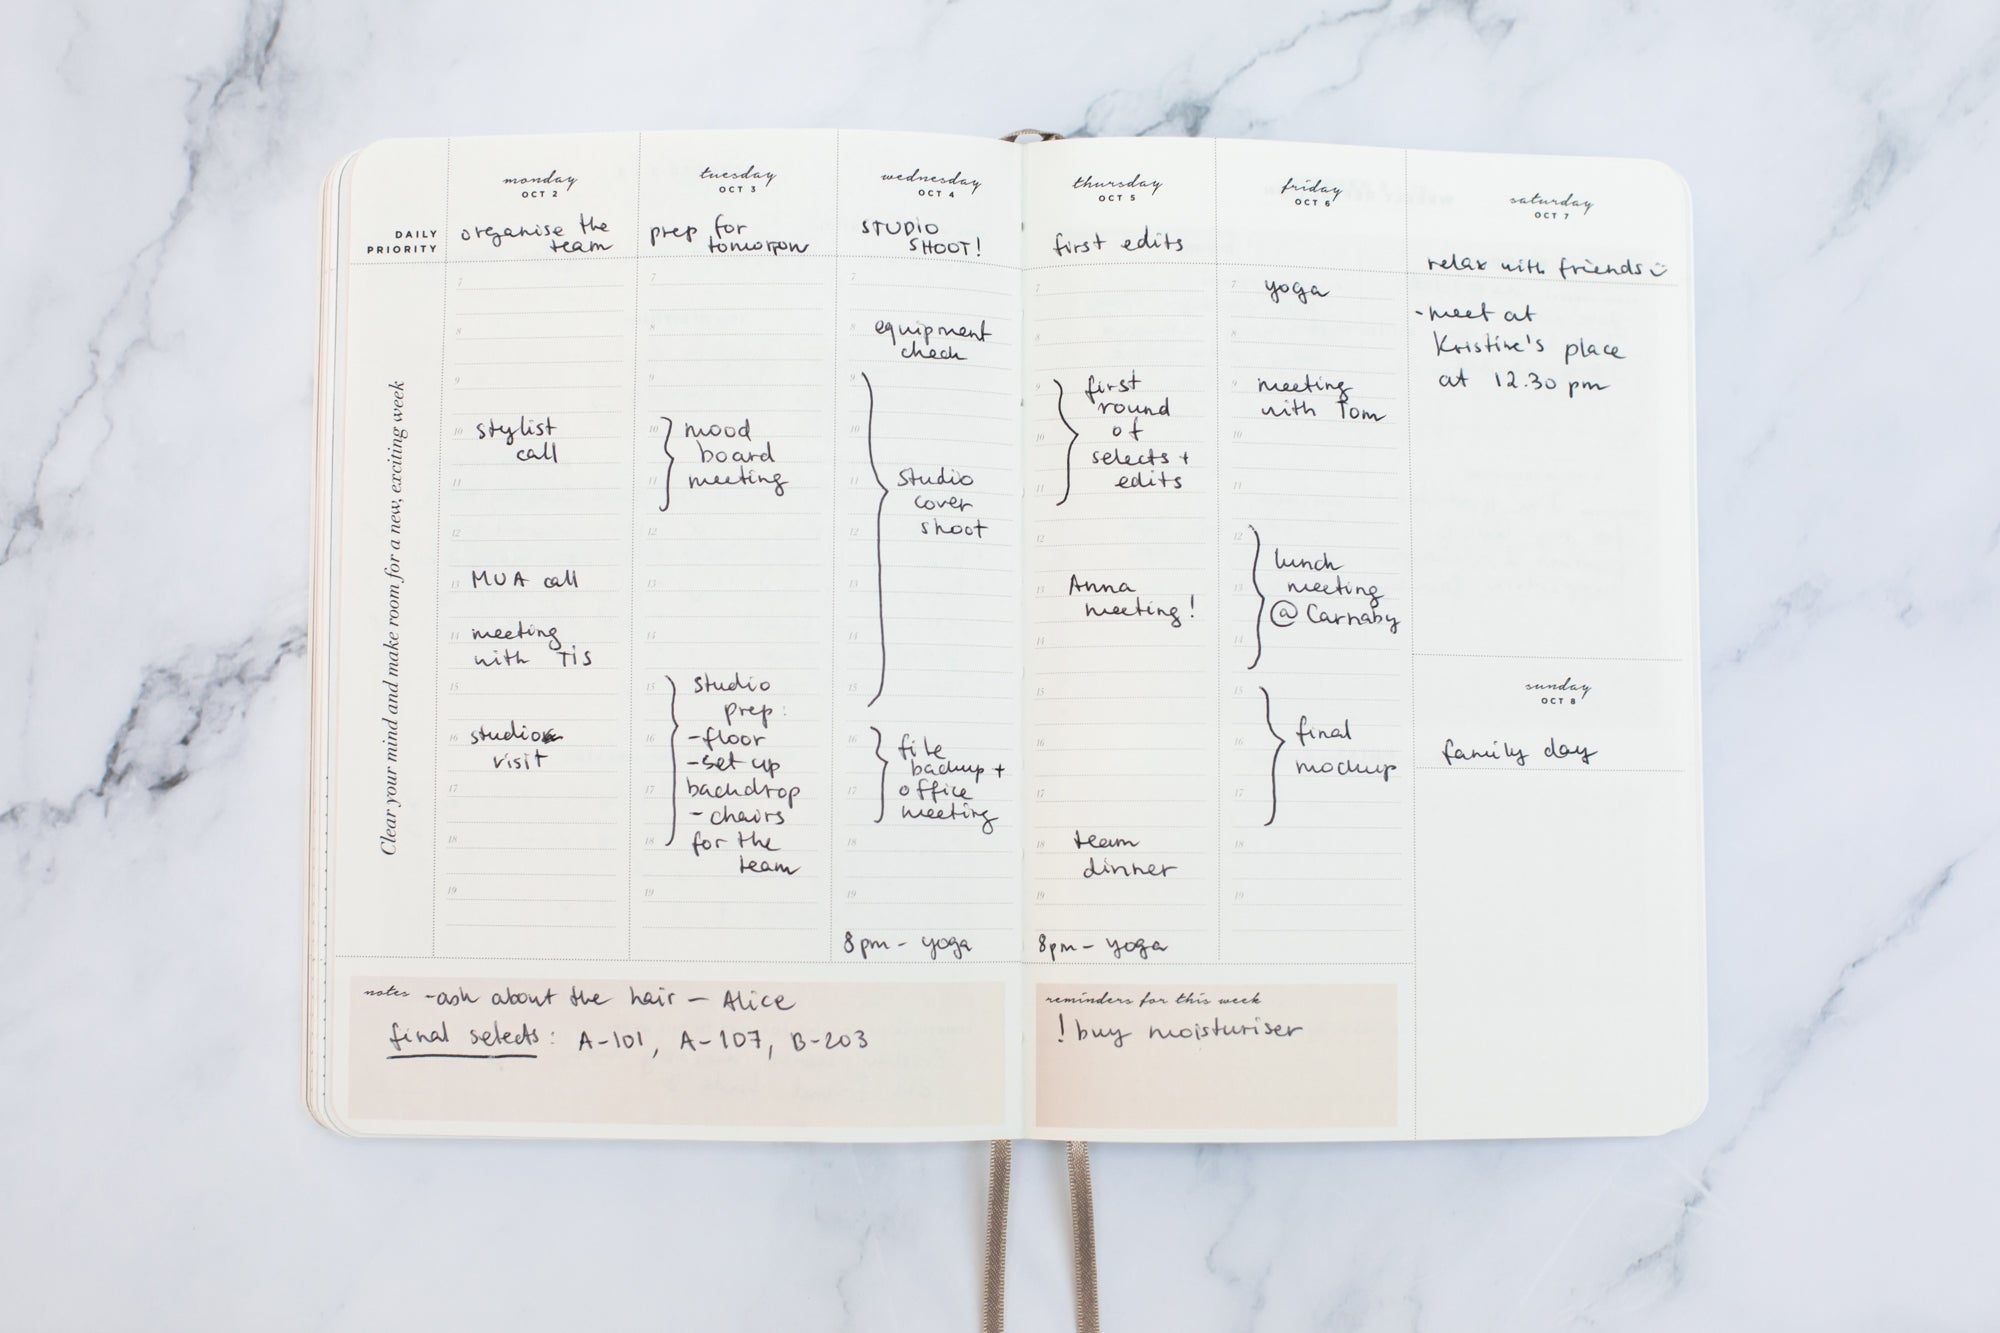 monday
OCT 2
tuesday
OCT 3
wednesday
OCT 4
thursday
OCT 5
friday
OCT 6
saturday
OCT 7
DAILY
PRIORITY
organise the
team
prep for
tomorrow
STUDIO
SHOOT!
first edits
relax with friends
Clear your mind and make room for a new, exciting week
7
8
9
10 stylist
call
11
12
13 MUA call
14 meeting
with TIS
15
16 studio
visit
17
18
19
7
8
9
10 mood
board
11 meeting
12
13
14
15 studio
prep:
16 -floor
-set up
17 backdrop
-chairs
18 for the
team
19
7
8 equipment
check
9
10
11 studio
cover
12 shoot
13
14
15
16 file
backup +
17 office
meeting
18
19
8pm - yoga
7
8
9 first
round
10 of
selects +
11 edits
12
13 Anna
meeting!
14
15
16
17
18 team
dinner
19
8pm - yoga
7 yoga
8
9 meeting
with Tom
10
11
12
lunch
13 meeting
@ Carnaby
14
15
final
16
mockup
17
18
19
-meet at
Kristine's place
at 12.30 pm
sunday
OCT 8
family day
notes -ask about the hair - Alice
final selects: A-101, A-107, B-203
reminders for this week
! buy moisturiser